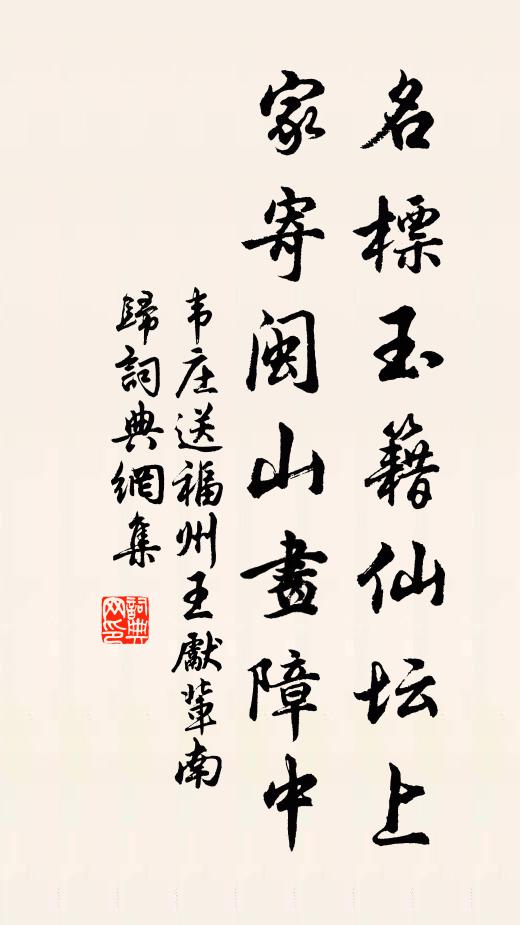 名標玉籍仙坛上
家寄闽山畫障中
韦庄送福州王獻輩南
歸詞典網集
詞典网印